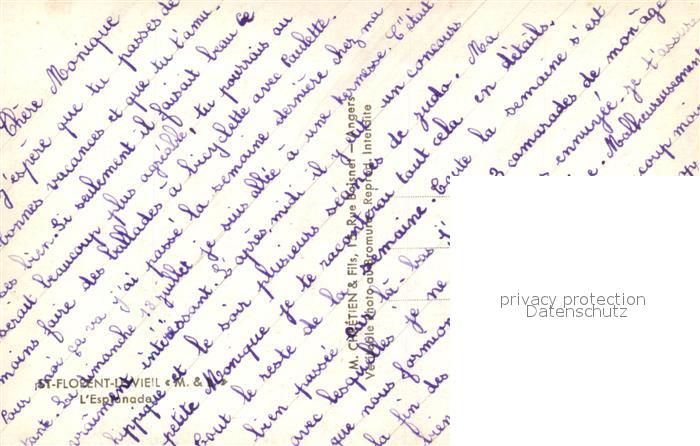 Chère Monique
J'espère que tu passes de
bonnes vacances et que tu t'amu-
ses bien. Si seulement il faisait beau ce
serait beaucoup plus agréable, tu pourrais au
moins faire des ballades à bicyclette avec Paulette.
Pour moi ça va j'ai passé la semaine dernière chez ma
tante. Le dimanche 18 juillet je suis allée à une kermesse. C'était
vraiment intéressant. L'après-midi il y a un concours
hippique et le soir plusieurs séances de judo. Ma
petite Monique je te raconterai tout cela en détails.
Tout le reste de la semaine. Toute la semaine s'est
bien passée là-bas 3 camarades de mon âge
avec lesquelles je ne ennuyée je t'assure
que nous formions Malheureusement
la fin des coup mi
bien
ST-FLORENT-LE-VIEIL « M. & L. »
L'Esplanade
M. CHRÉTIEN & Fils, 15, Rue Boisnet — Angers
Véritable Photo au Bromure Reprod. Interdite
privacy protection
Datenschutz